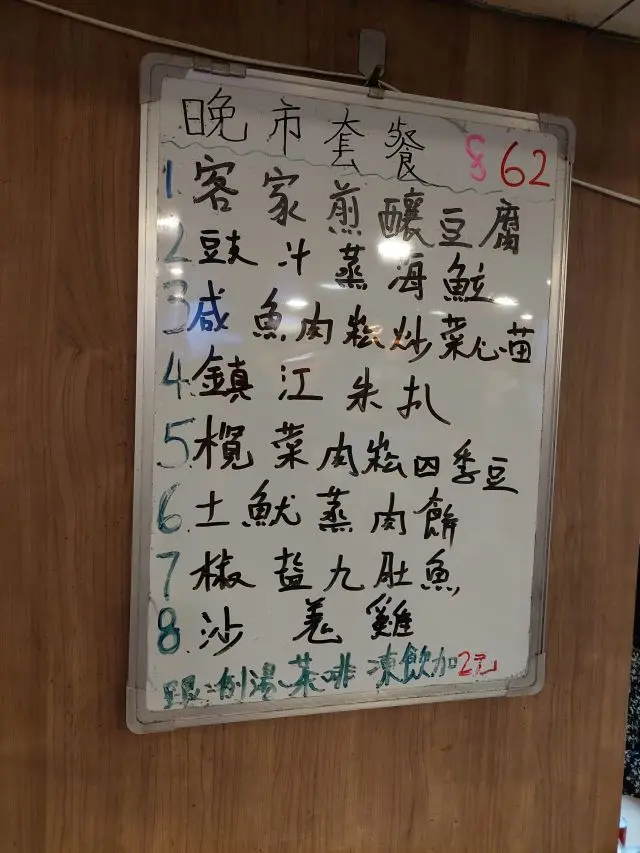 晚市套餐 $62
1.客家煎釀豆腐
2豉汁蒸海鱼立
3咸魚肉崧炒菜心苗
4.鎮江朱扒
5.欖菜肉崧四季豆
6.土魷蒸肉餅
7椒盐九肚魚
8.沙羌雞
跟:例湯.茶啡 凍飲加2元